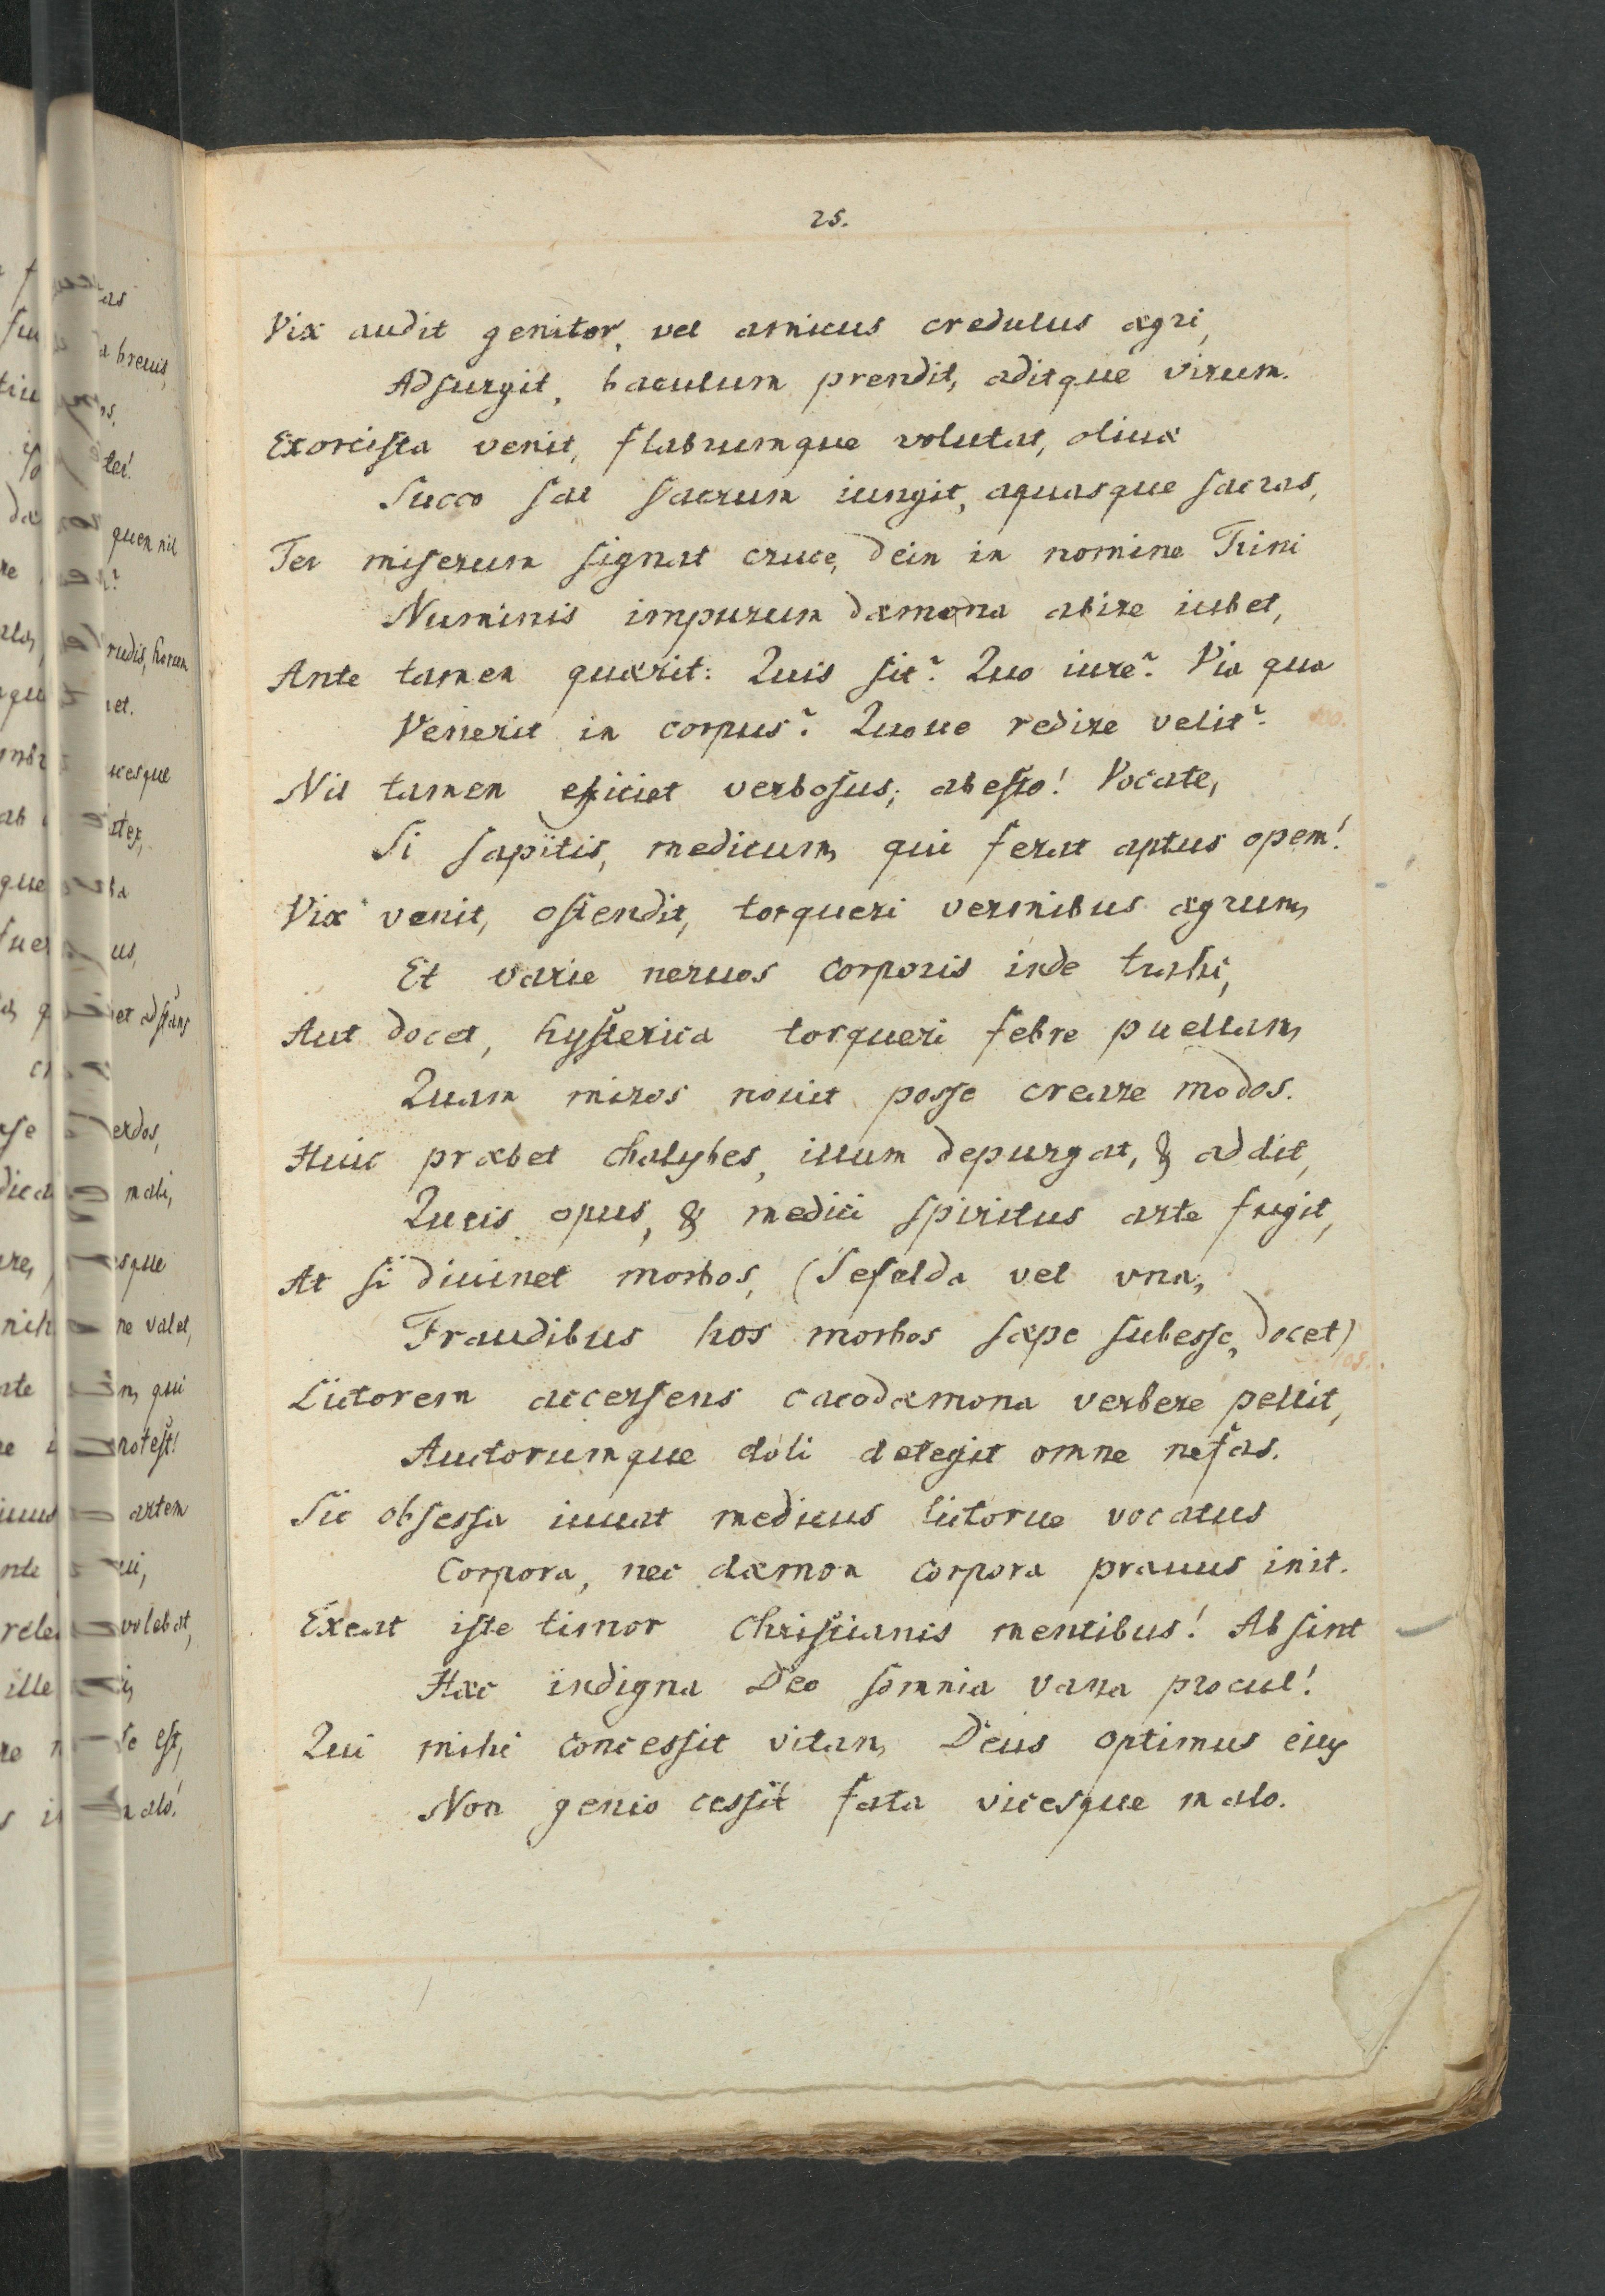 25.
Vix audit genitor, vel amicus credulus ægri,
Adsurgit, baculum prendit, aditque virum.
Exorcista venit, flabrumque volutat, oliuæ
Succo sal sacrum iungit, aquasque sacras,
Ter miserum signat cruce, dein in nomine Trini
Numinis impurum dæmona abire iubet,
Ante tamen quærit: Quis sit? Quo iure? Via qua
Venerit in corpus? Quoue redire velit? 100.
Nil tamen efficiet verbosus, abesto! Vocate,
Si sapitis, medicum, qui ferat aptus opem!
Vix venit, ostendit, torqueri vermibus ægrum,
Et varie neruos corporis inde trahi,
Aut docet, hysterica torqueri febre puellam,
Quam miros nouit posse creare modos.
Huic præbet chalybes, illum depurgat, & addit,
Queis opus, & medici spiritus arte fugit,
At si diuinet morbos, (Sefelda vel vna,
Fraudibus hos morbos sæpe subesse, docet)
Lictorem accersens cacodæmona verbere pellit,
Auctorumque doli detegit omne nefas.
Sic obsessa iuuat medicus lictorue vocatus
Corpora, nec dæmon corpora prauus init.
Exeat iste timor Christianis mentibus! Absint
Hæc indigna Deo somnia vana procul!
Qui mihi concessit vitam, Deus optimus eius
Non genio cessit fata vicesque malo.